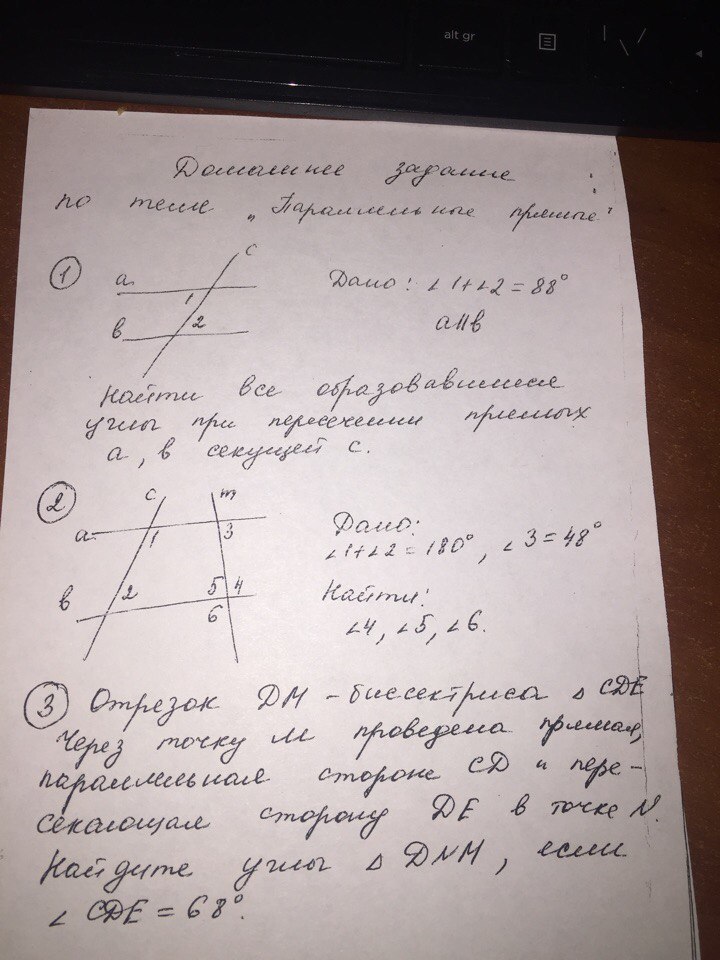 alt gr
Домашнее задание
по теме „Параллельные прямые"
1
a
c
1
b
2
Дано: ∠1+∠2=88°
a||b
Найти все образовавшиеся
углы при пересечении прямых
a, b секущей c.
2
c
m
a
1
3
2
5 4
b
6
Дано:
∠1+∠2=180°, ∠3=48°
Найти:
∠4, ∠5, ∠6.
3 Отрезок DM – биссектриса △ CDE.
Через точку M проведена прямая,
параллельная стороне CD и пере-
секающая сторону DE в точке N.
Найдите углы △ DNM, если
∠ CDE = 68°.